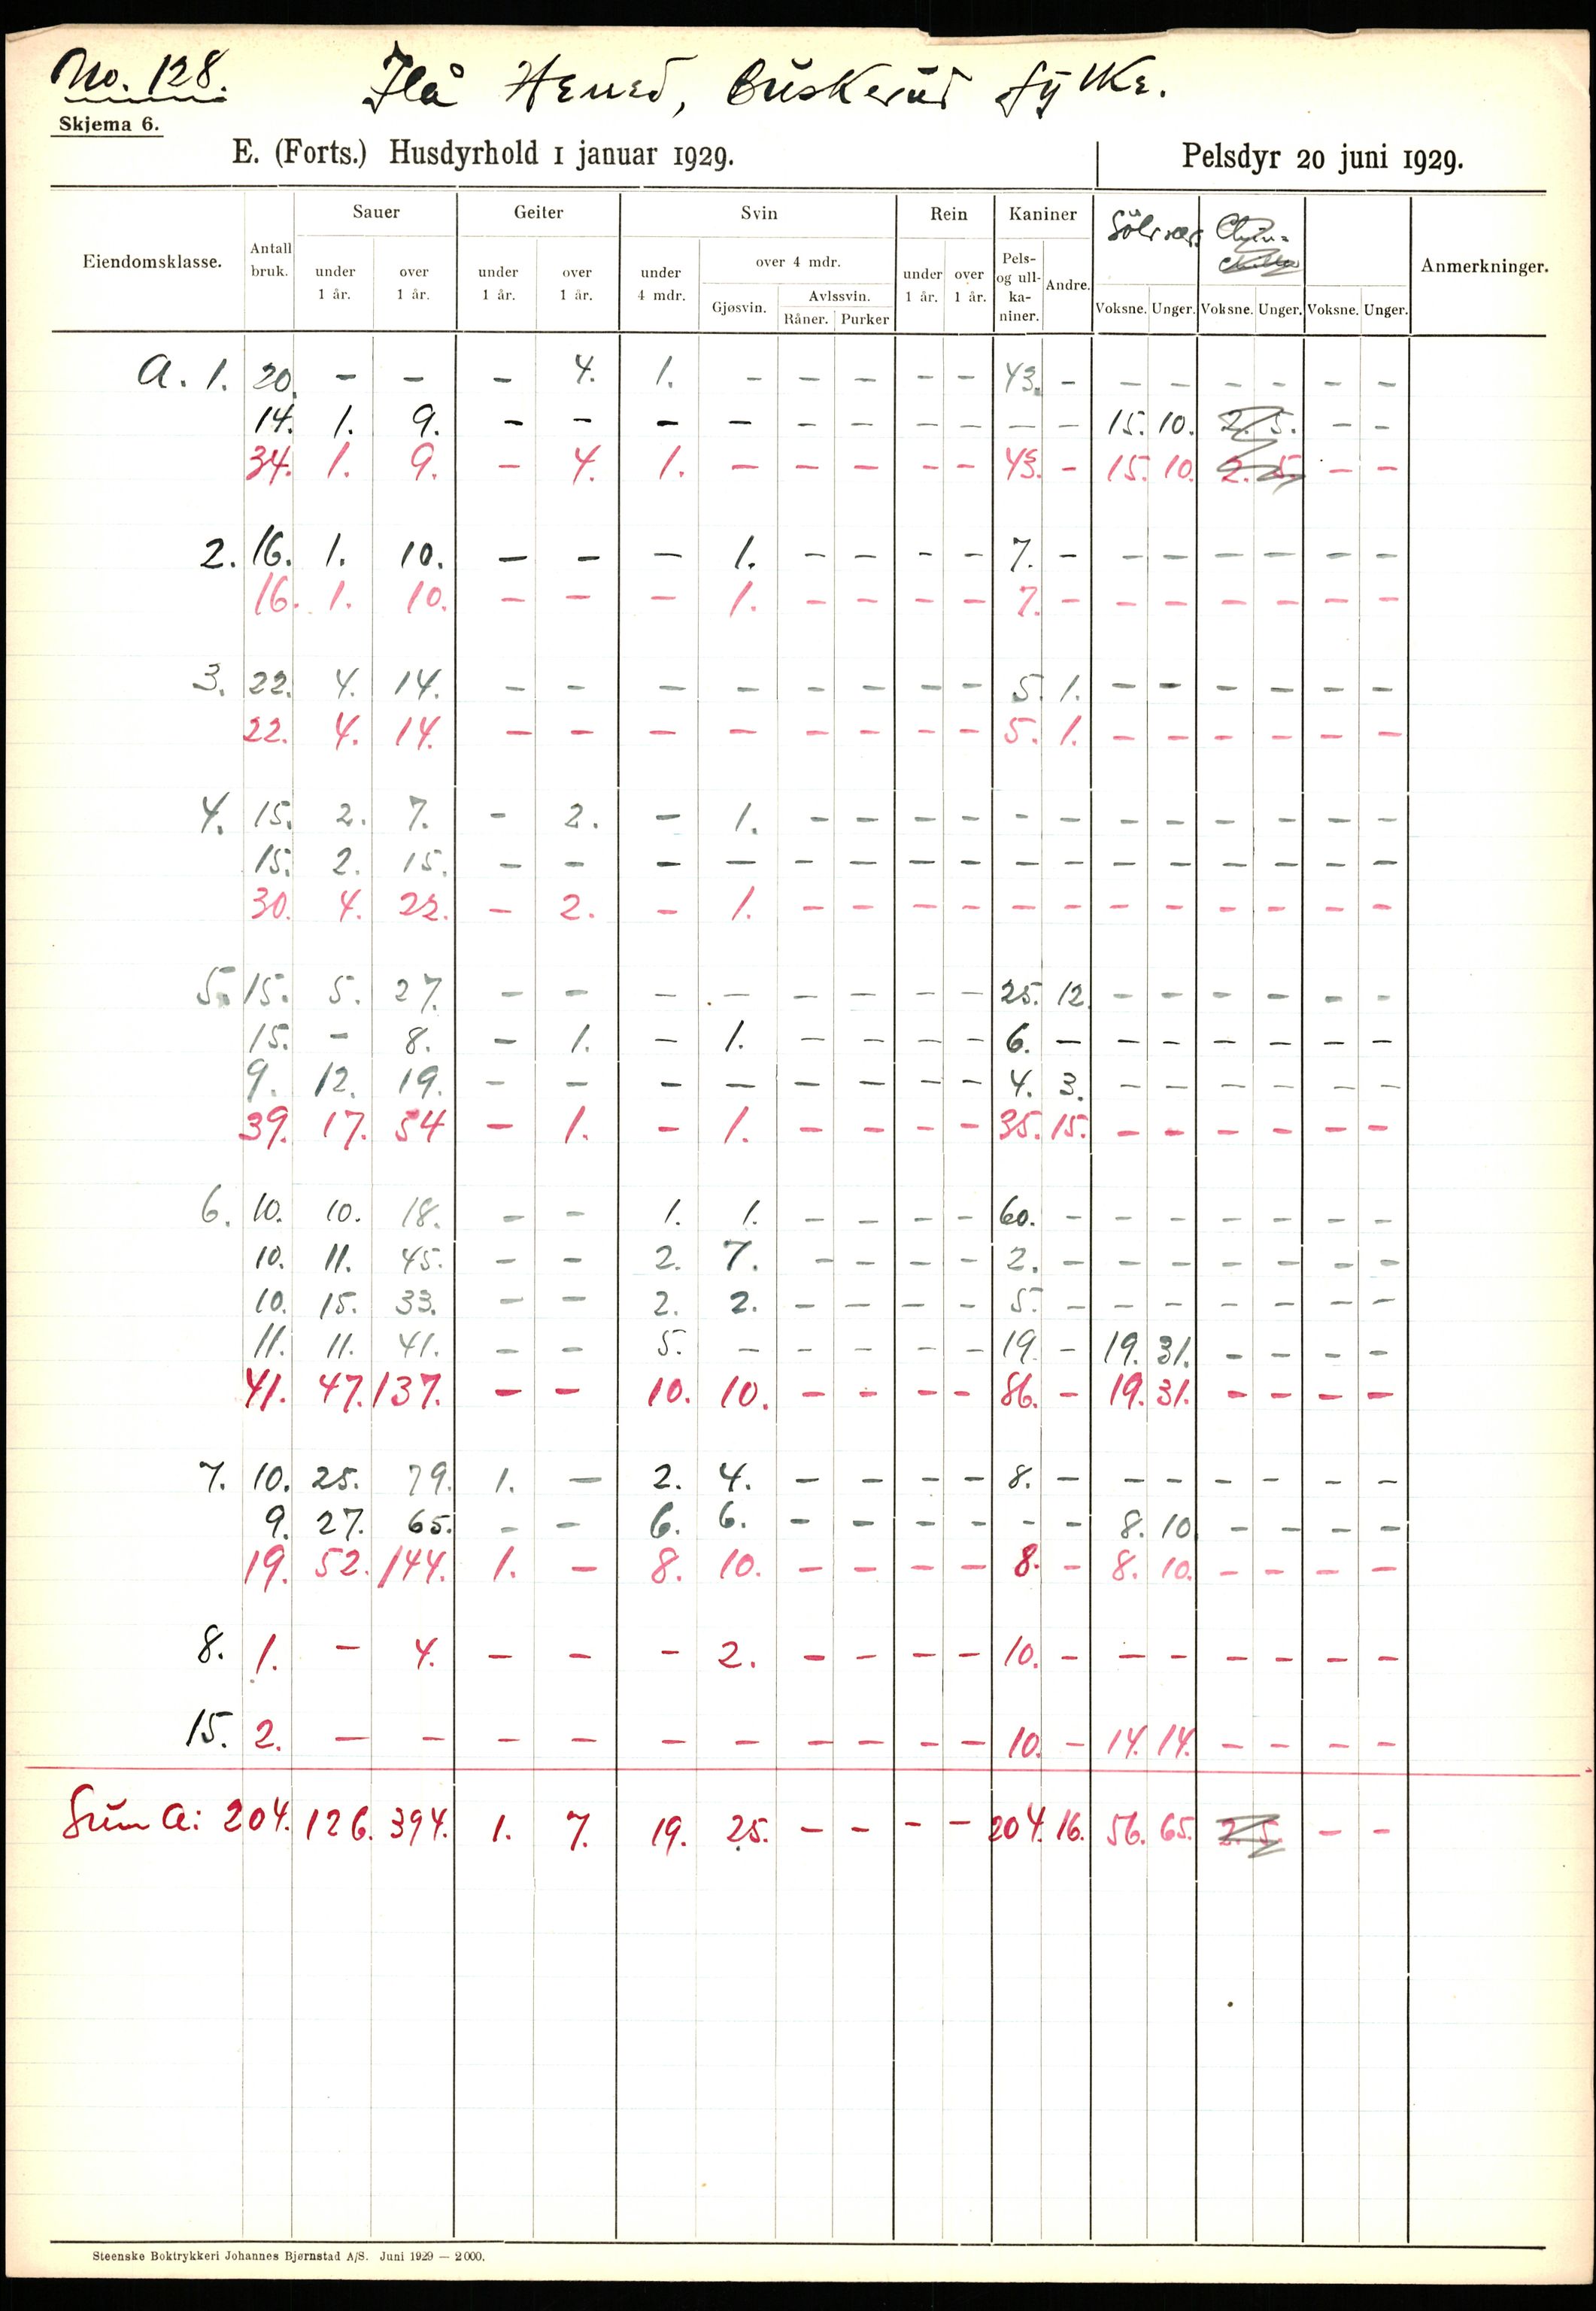 No. 128. Flå Herred, Buskerud fylke.
Skjema 6.
E. (Forts.) Husdyrhold 1 januar 1929. Pelsdyr 20 juni 1929.
Eiendomsklasse. Antall bruk. Sauer Geiter Svin Rein Kaniner Sölvrev Chin-chilla Anmerkninger.
under 1 år. over 1 år. under 1 år. over 1 år. under 4 mdr. over 4 mdr. Gjøsvin. Avlssvin. Råner. Purker under 1 år. over 1 år. Pels- og ull-ka-niner. Andre. Voksne. Unger. Voksne. Unger. Voksne. Unger.
A. 1. 20. - - - 4. 1. - - - - - 43. - - - - - - -
14. 1. 9. - - - - - - - - - - 15. 10. 2. 5. - -
34. 1. 9. - 4. 1. - - - - - 43. - 15. 10. 2. 5. - -
2. 16. 1. 10. - - - 1. - - - - 7. - - - - - - -
16. 1. 10. - - - 1. - - - - 7. - - - - - - -
3. 22. 4. 14. - - - - - - - - 5. 1. - - - - - -
22. 4. 14. - - - - - - - - 5. 1. - - - - - -
4. 15. 2. 7. - 2. - 1. - - - - - - - - - - - -
15. 2. 15. - - - - - - - - - - - - - - - -
30. 4. 22. - 2. - 1. - - - - - - - - - - - -
5. 15. 5. 27. - - - - - - - - 25. 12. - - - - - -
15. - 8. - 1. - 1. - - - - 6. - - - - - - -
9. 12. 19. - - - - - - - - 4. 3. - - - - - -
39. 17. 54 - 1. - 1. - - - - 35. 15. - - - - - -
6. 10. 10. 18. - - 1. 1. - - - - 60. - - - - - - -
10. 11. 45. - - 2. 7. - - - - 2. - - - - - - -
10. 15. 33. - - 2. 2. - - - - 5. - - - - - - -
11. 11. 41. - - 5. - - - - - 19. - 19. 31. - - - -
41. 47. 137. - - 10. 10. - - - - 86. - 19. 31. - - - -
7. 10. 25. 79. 1. - 2. 4. - - - - 8. - - - - - - -
9. 27. 65. - - 6. 6. - - - - - - 8. 10 - - - -
19. 52. 144. 1. - 8. 10. - - - - 8. - 8. 10. - - - -
8. 1. - 4. - - - 2. - - - - 10. - - - - - - -
15. 2. - - - - - - - - - - 10. - 14. 14. - - - -
Sum A: 204. 126. 394. 1. 7. 19. 25. - - - - 204. 16. 56. 65. 2. 5. - -
Steenske Boktrykkeri Johannes Bjørnstad A/S. Juni 1929 — 2000.